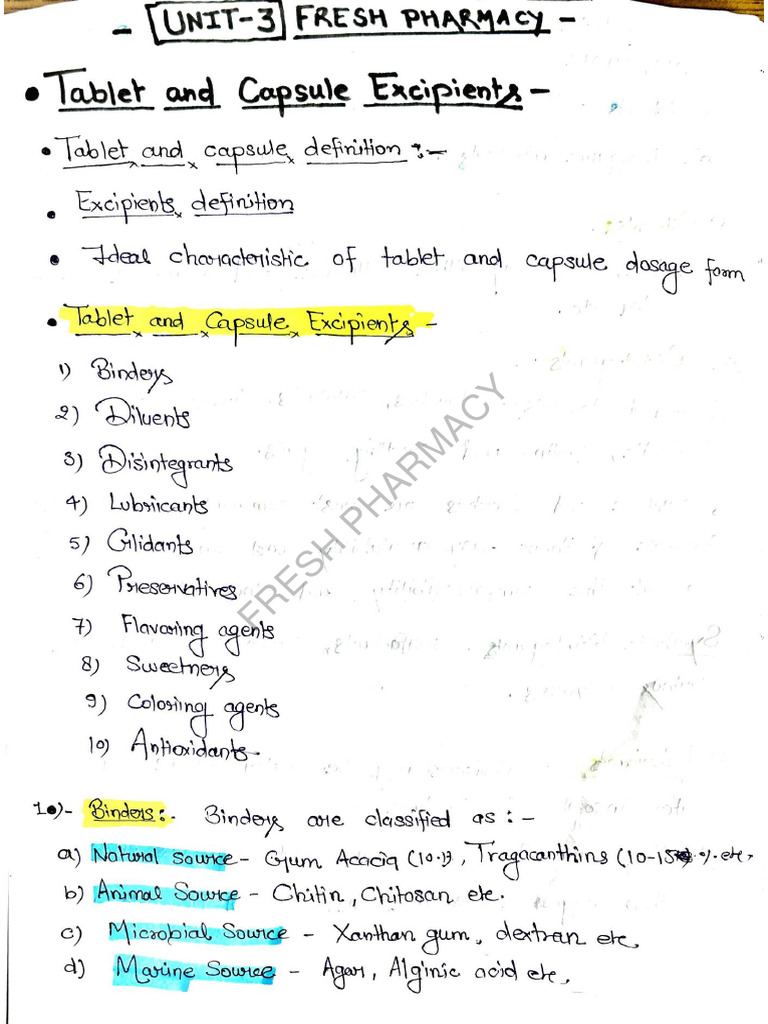 - UNIT-3 FRESH PHARMACY -
• Tablet and Capsule Excipients -
• Tablet and capsule definition :-
• Excipients definition
• Ideal characteristic of tablet and capsule dosage form
• Tablet and Capsule Excipients -
1) Binders
2) Diluents
3) Disintegrants
4) Lubricants
5) Glidants
6) Preservatives
7) Flavoring agents
8) Sweetners
9) Coloring agents
10) Antioxidants
FRESH PHARMACY
1.)- Binders:- Binders are classified as :-
a) Natural source - Gum Acacia (10%), Tragacanthins (10-15 %) etc.
b) Animal Source - Chitin, Chitosan etc.
c) Microbial Source - Xanthan gum, dextran etc,
d) Marine Source - Agar, Alginic acid etc,